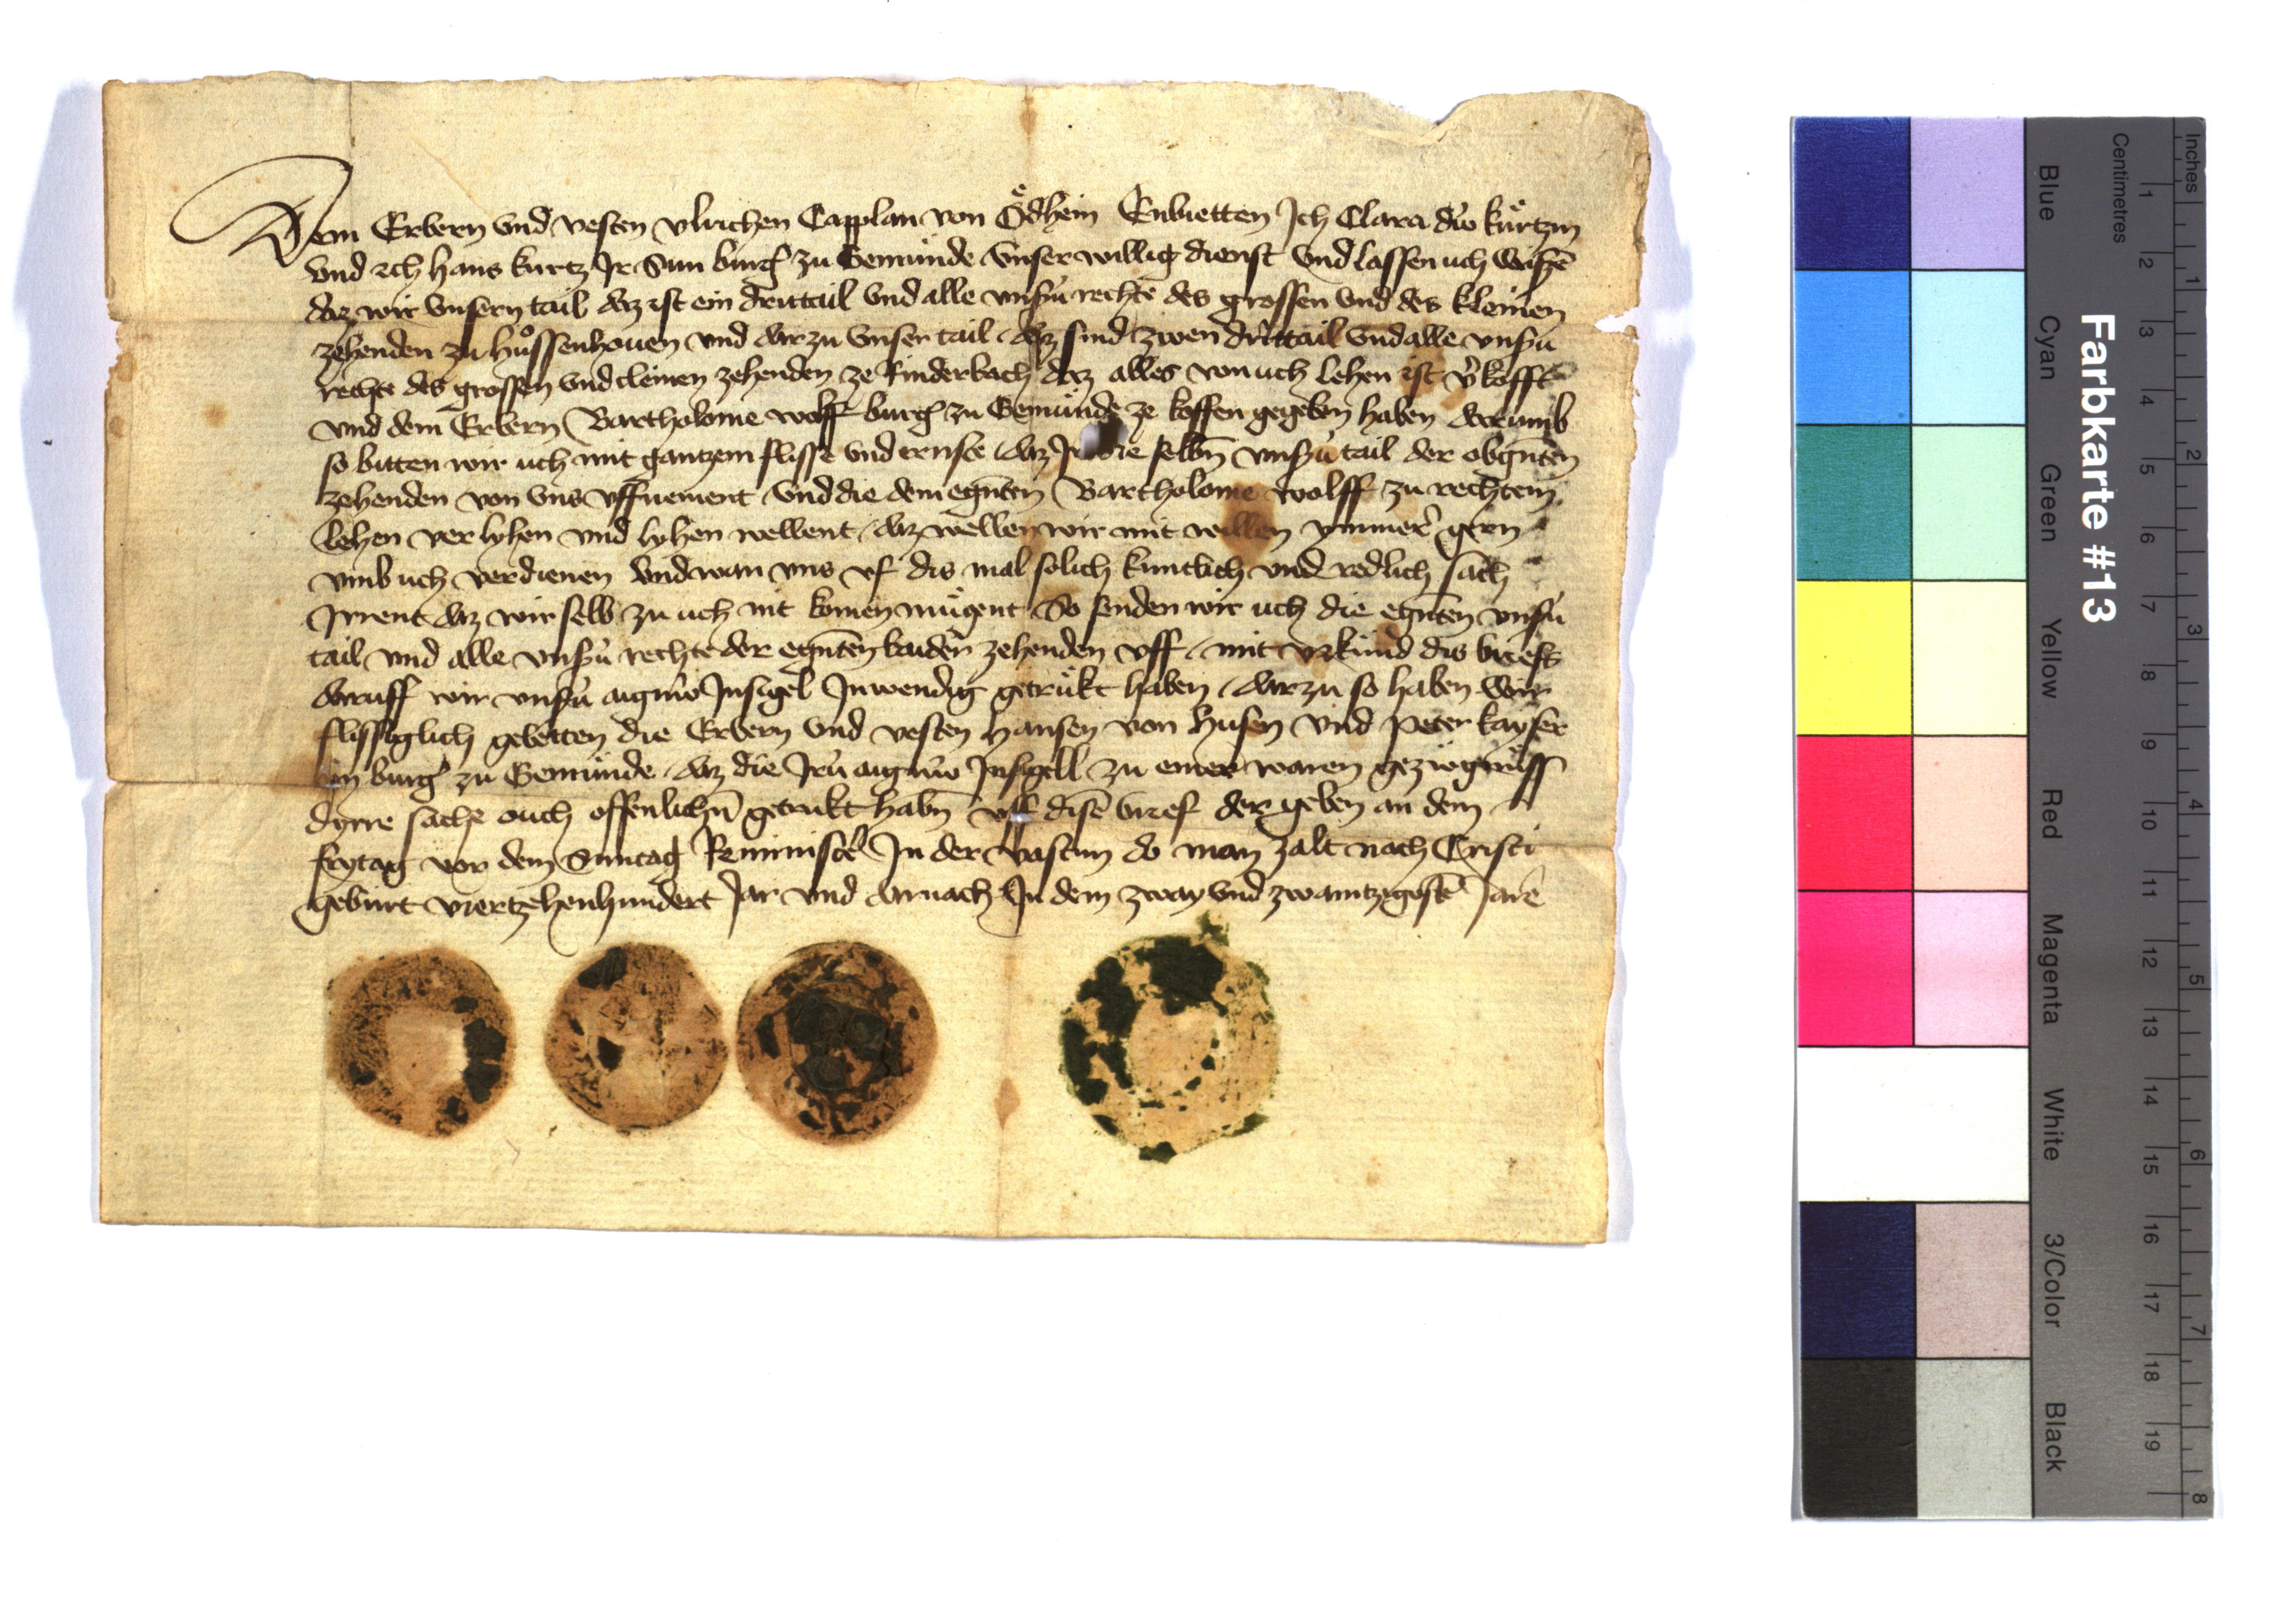 Dem Erbern vnd vesten vlrichen Capplan von Ödhein Enbietten Ich Clara diu kürtzin
vnd ich hans kurtz Ir Sun burg̃ zu Gemünde vnser willig dienst vnd lassen uch wissẽ
daz wir vnsern tail daz ist ein drittail vnd alle vnsrü rechte des grossen vnd des kleinen
zehenden zu hůssenhouen vnd darzu vnser tail daz sind zwen drittail vnd alle vnsrü
rechte des grossen vnd cleinen zehenden ze Rinderbach daz alles von uch lehen ist v̾kofft
vnd dem Erbern Bartholome wolff burg̃ zu Gemünde ze koffen gegeben haben darumb
so bitten wir uch mit gantzem flisse vnd ernste daz Ir die selbñ vnsrü tail der obgñten
zehenden von vns vffnement vnd die dem egñten Bartholome wolff zu rechtem
lehen verlyhen vnd lyhen wellent daz wellen wir mit willen ymmer gern
vmb uch verdienen vnd wan vns vf dis mal solich kuntlich vnd redlich sach
Irrent daz wir selb zu uch nit komen mügent So senden wir uch die egñten vnsrü
tail vnd alle vnsrü rechte der egñten baiden zehenden vff mit vrkünd dis briefs
daruff wir vnsrü aigniu Insigel Inwendig getrükt haben darzu so haben wir
flissiglich gebetten die Erbern vnd vesten hansen von husen vnd Peter kayser
burg̃ zu Gemünde daz die Irü aigniu Insigell zu einer waren gezügnüss
dirre sache ouch offenlichñ getrukt habñ vff disẽ brief der geben an dem
frytag vor dem Sunntag Reminiscẽ In der vastun do man zalt nach Cristi
gebürt viertzehenhundert Jar vnd darnach In dem zway vnd zwaintzigostẽ Jare
Farbkarte #13
Blue
Cyan
Green
Yellow
Red
Magenta
White
3/Color
Black
Centimetres
1 2 3 4 5 6 7 8 9 10 11 12 13 14 15 16 17 18 19
Inches
1 2 3 4 5 6 7 8